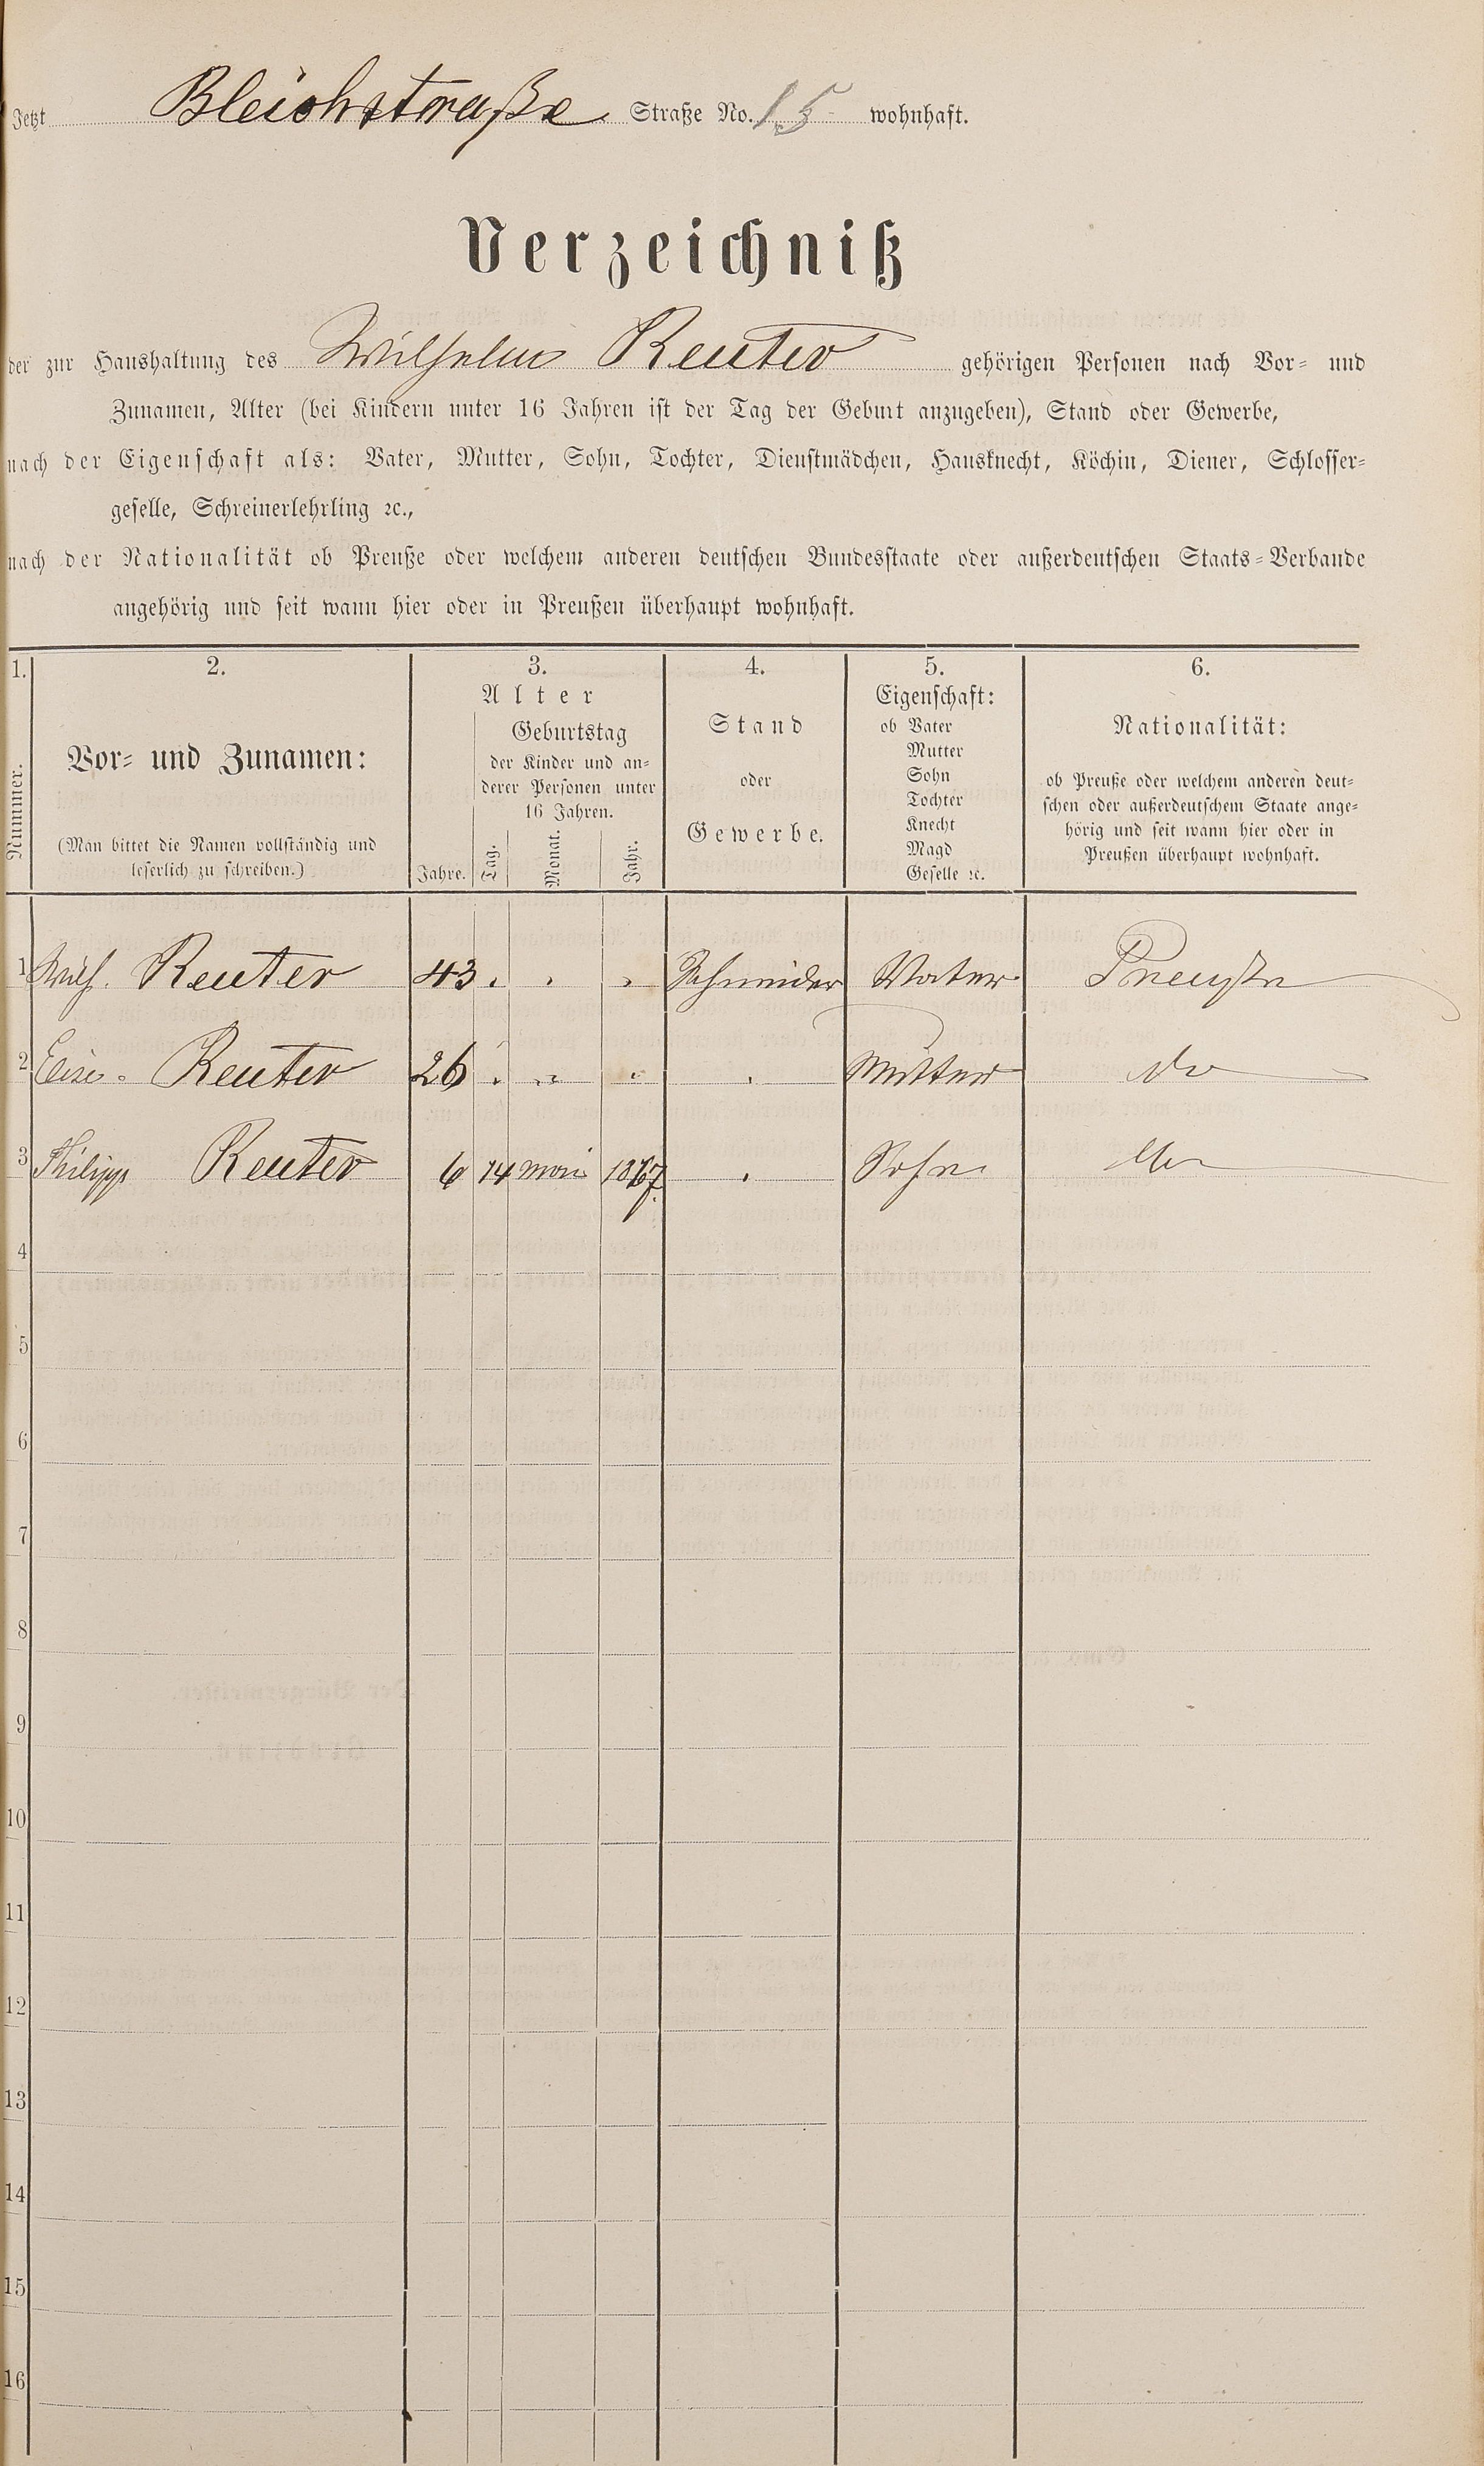 Jetzt Bleichstraße Straße No. 15 wohnhaft.
Verzeichniß
der zur Haushaltung des Wilhelm Reuter gehörigen Personen nach Vor- und
Zunamen, Alter (bei Kindern unter 16 Jahren ist der Tag der Geburt anzugeben), Stand oder Gewerbe,
nach der Eigenschaft als: Vater, Mutter, Sohn, Tochter, Dienstmädchen, Hausknecht, Köchin, Diener, Schlosser-
geselle, Schreinerlehrling ꝛc.,
nach der Nationalität ob Preuße oder welchem anderen deutschen Bundesstaate oder außerdeutschen Staats-Verbande
angehörig und seit wann hier oder in Preußen überhaupt wohnhaft.
1. 2. 3. 4. 5. 6.
Nummer.
Vor- und Zunamen:
(Man bittet die Namen vollständig und
leserlich zu schreiben.)
Alter
Jahre.
Geburtstag
der Kinder und an-
derer Personen unter
16 Jahren.
Tag. Monat. Jahr.
Stand
oder
Gewerbe.
Eigenschaft:
ob Vater
Mutter
Sohn
Tochter
Knecht
Magd
Geselle ꝛc.
Nationalität:
ob Preuße oder welchem anderen deut-
schen oder außerdeutschem Staate ange-
hörig und seit wann hier oder in
Preußen überhaupt wohnhaft.
1 Wilh. Reuter 43 Schneider Vater Preuße
2 Elise Reuter 26 Mutter do
3 Philipp Reuter 6 14 Mai 1867 Sohn
4
5
6
7
8
9
10
11
12
13
14
15
16